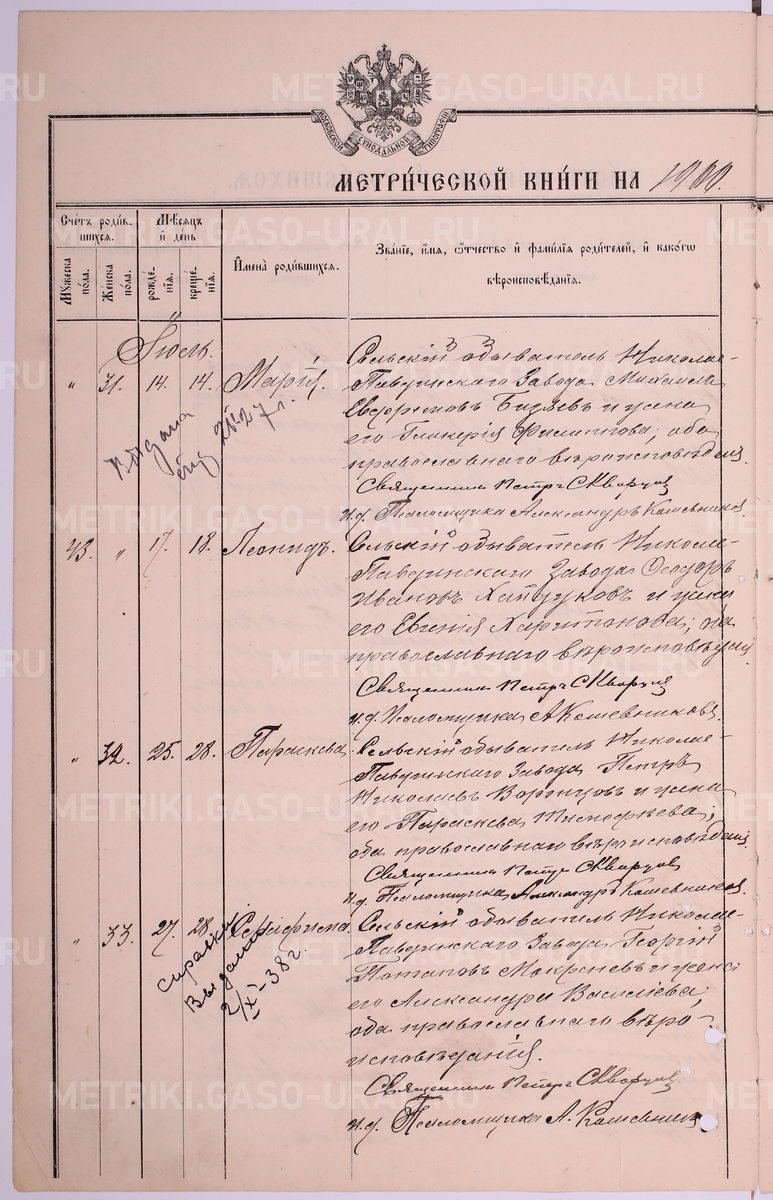 МОСКОВСКОЙ СУНОДАЛЬНОЙ ТИПОГРАФІИ
МЕТРИЧЕСКОЙ КНИГИ НА 1900.
Счетъ родив-
шихся.
Мѣсяцъ
и день
Имена родившихся.
Званіе, имя, отчество и фамилія родителей, и какогѡ
вѣроисповѣданія.
Мужеска
пола.
Женска
пола.
рожде-
нія.
креще-
нія.
Іюль.
„ 31. 14. 14. Марія.
Сельскій обыватель Николае-
Павдинскаго Завода Михаилъ
Евфимовъ и жена
его Гликерія Филиппова; оба
православнаго вѣроисповѣданія
Священникъ Петръ Скворцов
И.д. Псаломщика Александръ Кошевников
Выдана
27 г.
43. „ 17. 18. Леонидъ.
Сельскій обыватель Николае-
Павдинскаго Завода Ѳеодоръ
Ивановъ Хайдуковъ и жена
его Евгенія Харитонова; оба
православнаго вѣроисповѣдані
Священникъ Петръ Скворцов
И.д. Псаломщика А Кошевниковъ.
„ 32. 25. 28. Параскева.
Сельскій обыватель Николае-
Павдинскаго Завода Петръ
Николаевъ Воронцовъ и жена
его Параскева Тимофеева;
оба православнаго вѣроисповѣданія
Священникъ Петръ Скворцов
И.д. Псаломщика Александръ Кошевников.
„ 33. 27. 28. Серафима.
Сельскій обыватель Николае-
Павдинскаго Завода Георгій
Потаповъ Мокроневъ и жена
его Александра Василіева;
оба православнаго вѣро-
исповѣданія.
Священникъ Петръ Скворцов
И.д. Псаломщика А. Кошевник
справка
Выдана
2/X-38 г.
METRIKI.GASO-URAL.RU